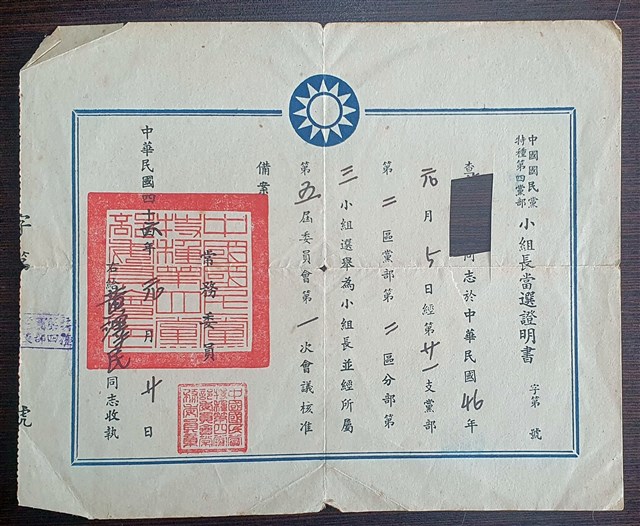 中國國民黨
特種第四黨部
小組長當選證明書
字第 號
查 同志於中華民國46年
元月 日經第廿一支黨部
第二區黨部第二區分部第
三小組選舉為小組長並經所屬
第五屆委員會第一次會議核准
備案
常務委員
中華民國四十 年元月廿日
右給黃澤民同志收執
字第
號